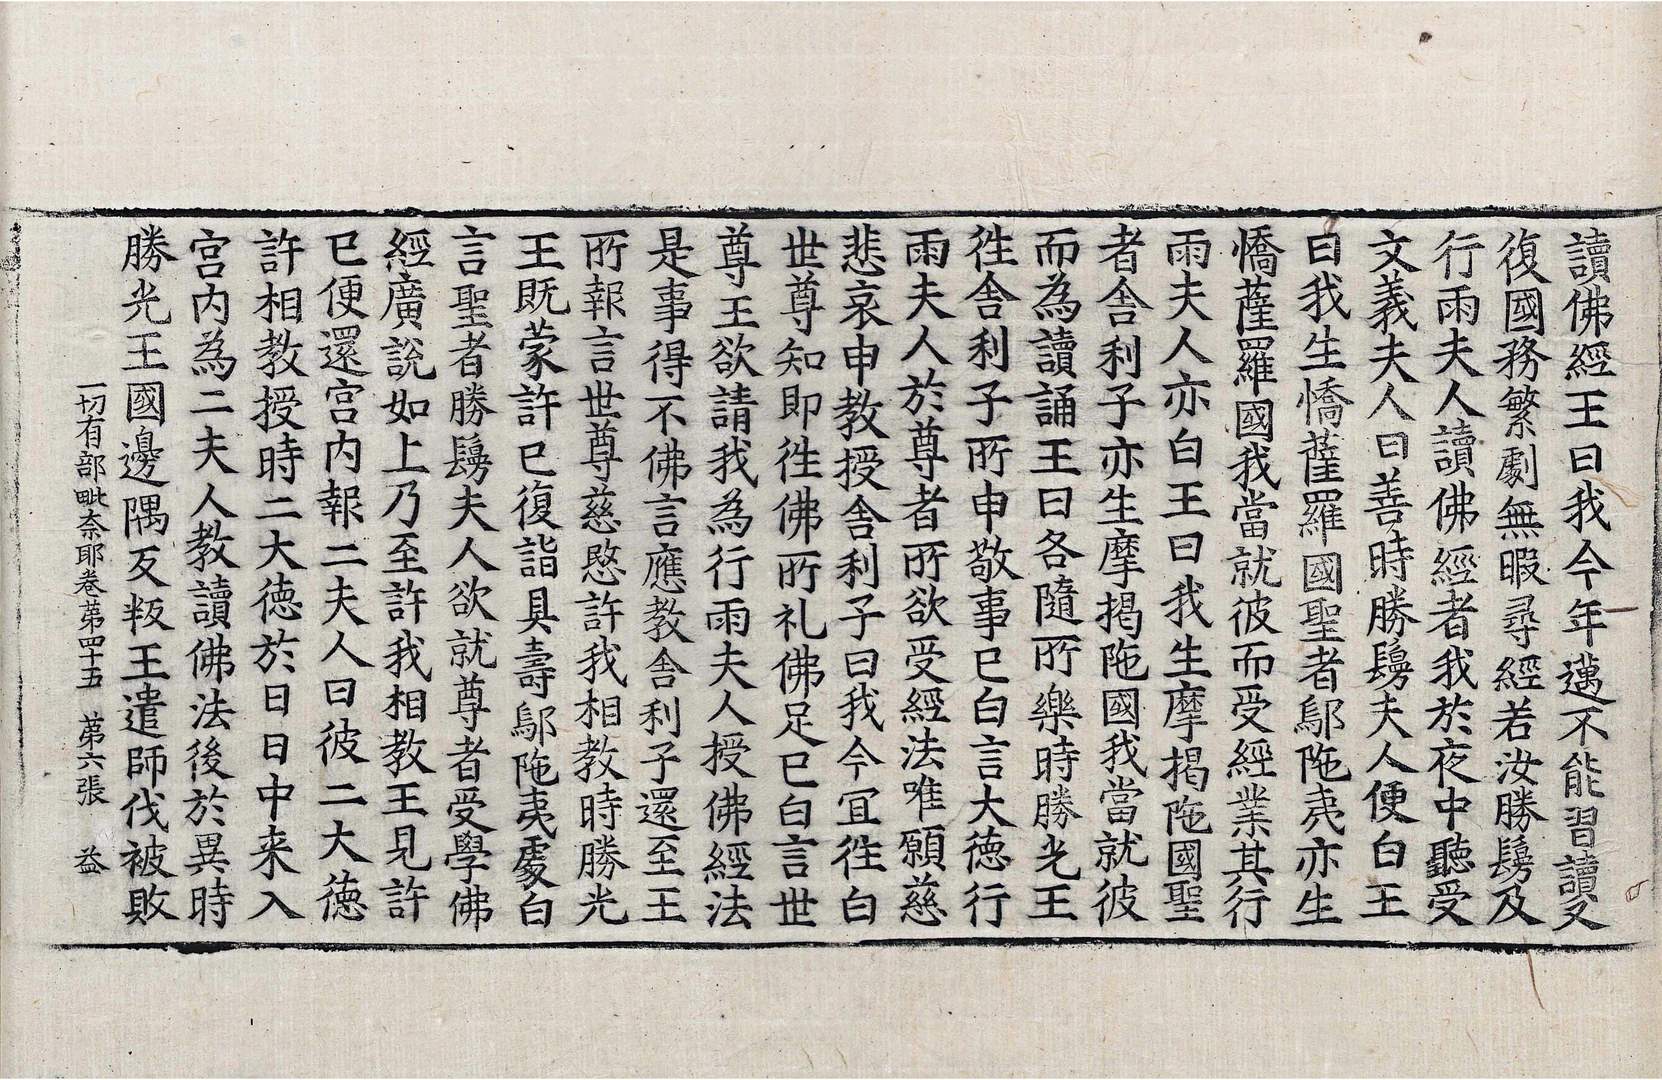 讀佛經王曰我今年邁不能習讀又
復國務繁劇無暇尋經若汝勝鬘及
行雨夫人讀佛經者我於夜中聽受
文義夫人曰善時勝鬘夫人便白王
曰我生憍薩羅國聖者鄔陁夷亦生
憍薩羅國我當就彼而受經業其行
雨夫人亦白王曰我生摩揭陁國聖
者舍利子亦生摩揭陁國我當就彼
而為讀誦王曰各隨所樂時勝光王
往舍利子所申敬事已白言大德行
雨夫人於尊者所欲受經法唯願慈
悲哀申教授舍利子曰我今冝往白
世尊知即往佛所礼佛足已白言世
尊王欲請我為行雨夫人授佛經法
是事得不佛言應教舍利子還至王
所報言世尊慈愍許我相教時勝光
王既蒙許已復詣具壽鄔陁夷處白
言聖者勝鬘夫人欲就尊者受學佛
經廣說如上乃至許我相教王見許
已便還宮內報二夫人曰彼二大德
許相教授時二大德於日日中来入
宮內為二夫人教讀佛法後於異時
勝光王國邊隅反叛王遣師伐被敗
一切有部毗奈耶卷苐四十五 苐六張 益